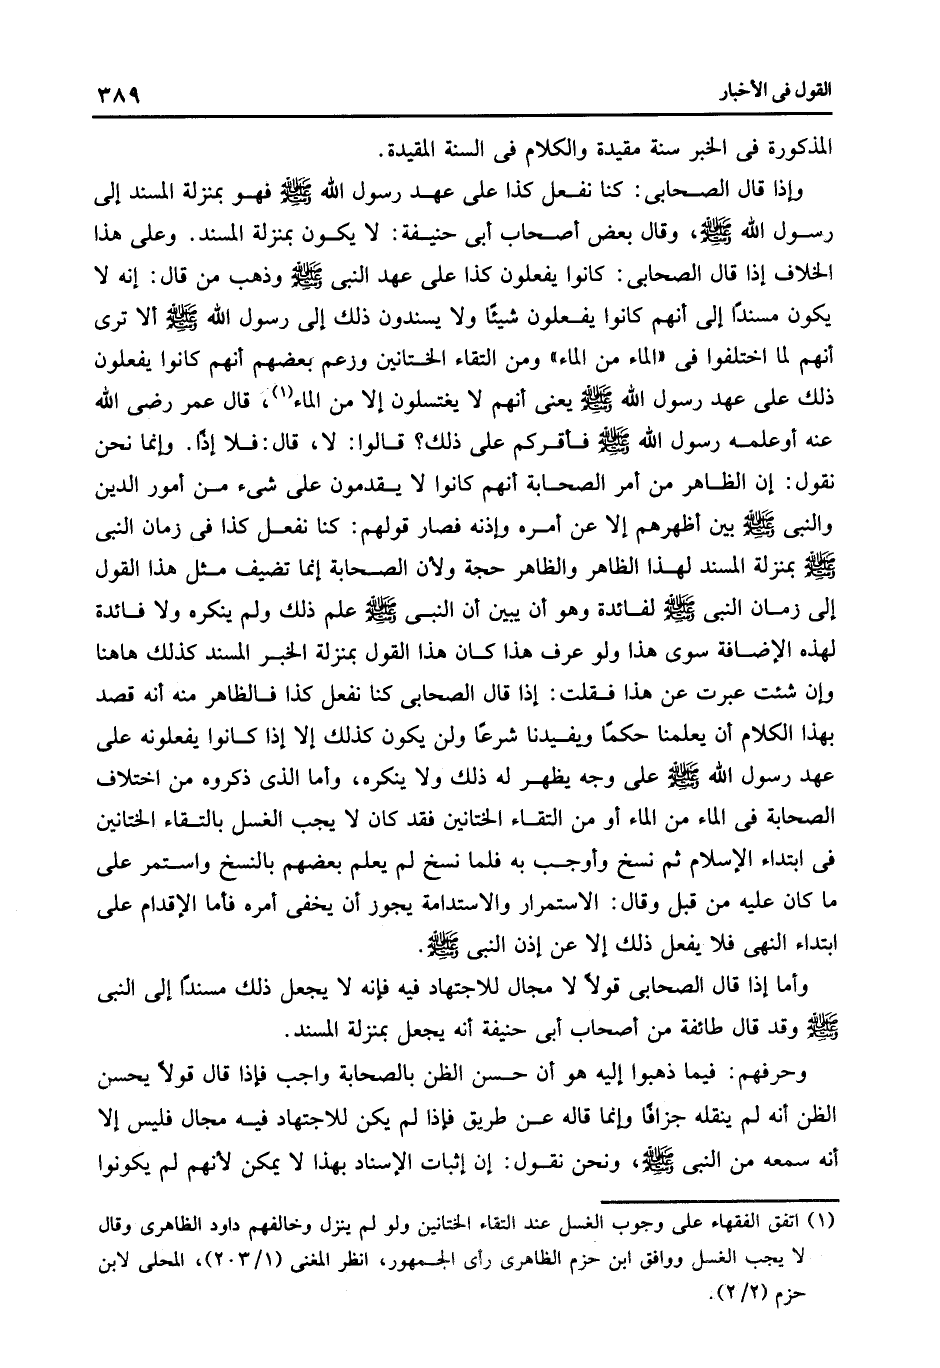 القول فى الأخبار
٣٨٩
المذكورة فى الخبر سنة مقيدة والكلام فى السنة المقيدة.
وإذا قال الصحابى: كنا نفعل كذا على عهد رسول الله ﷺ فهو بمنزلة المسند إلى
رسول الله ﷺ، وقال بعض أصحاب أبى حنيفة: لا يكون بمنزلة المسند. وعلى هذا
الخلاف إذا قال الصحابى: كانوا يفعلون كذا على عهد النبى ﷺ وذهب من قال: إنه لا
يكون مسندًا إلى أنهم كانوا يفعلون شيئًا ولا يسندون ذلك إلى رسول الله ﷺ ألا ترى
أنهم لما اختلفوا فى «الماء من الماء» ومن التقاء الختانين وزعم بعضهم أنهم كانوا يفعلون
ذلك على عهد رسول الله ﷺ يعنى أنهم لا يغتسلون إلا من الماء(١)، قال عمر رضى الله
عنه أوعلمه رسول الله ﷺ فأقركم على ذلك؟ قالوا: لا، قال: فلا إذًا. وإنما نحن
نقول: إن الظاهر من أمر الصحابة أنهم كانوا لا يقدمون على شىء من أمور الدين
والنبى ﷺ بين أظهرهم إلا عن أمره وإذنه فصار قولهم: كنا نفعل كذا فى زمان النبى
ﷺ بمنزلة المسند لهذا الظاهر والظاهر حجة ولأن الصحابة إنما تضيف مثل هذا القول
إلى زمان النبى ﷺ لفائدة وهو أن يبين أن النبى ﷺ علم ذلك ولم ينكره ولا فائدة
لهذه الإضافة سوى هذا ولو عرف هذا كان هذا القول بمنزلة الخبر المسند كذلك هاهنا
وإن شئت عبرت عن هذا فقلت: إذا قال الصحابى كنا نفعل كذا فالظاهر منه أنه قصد
بهذا الكلام أن يعلمنا حكمًا ويفيدنا شرعًا ولن يكون كذلك إلا إذا كانوا يفعلونه على
عهد رسول الله ﷺ على وجه يظهر له ذلك ولا ينكره، وأما الذى ذكروه من اختلاف
الصحابة فى الماء من الماء أو من التقاء الختانين فقد كان لا يجب الغسل بالتقاء الختانين
فى ابتداء الإسلام ثم نسخ وأوجب به فلما نسخ لم يعلم بعضهم بالنسخ واستمر على
ما كان عليه من قبل وقال: الاستمرار والاستدامة يجوز أن يخفى أمره فأما الإقدام على
ابتداء النهى فلا يفعل ذلك إلا عن إذن النبى ﷺ.
وأما إذا قال الصحابى قولاً لا مجال للاجتهاد فيه فإنه لا يجعل ذلك مسندًا إلى النبى
ﷺ وقد قال طائفة من أصحاب أبى حنيفة أنه يجعل بمنزلة المسند.
وحرفهم: فيما ذهبوا إليه هو أن حسن الظن بالصحابة واجب فإذا قال قولاً يحسن
الظن أنه لم ينقله جزافًا وإنما قاله عن طريق فإذا لم يكن للاجتهاد فيه مجال فليس إلا
أنه سمعه من النبى ﷺ، ونحن نقول: إن إثبات الإسناد بهذا لا يمكن لأنهم لم يكونوا
(١) اتفق الفقهاء على وجوب الغسل عند التقاء الختانين ولو لم ينزل وخالفهم داود الظاهرى وقال
لا يجب الغسل ووافق ابن حزم الظاهرى رأى الجمهور، انظر المغنى (٢٠٣/١)، المحلى لابن
حزم (٢/٢).